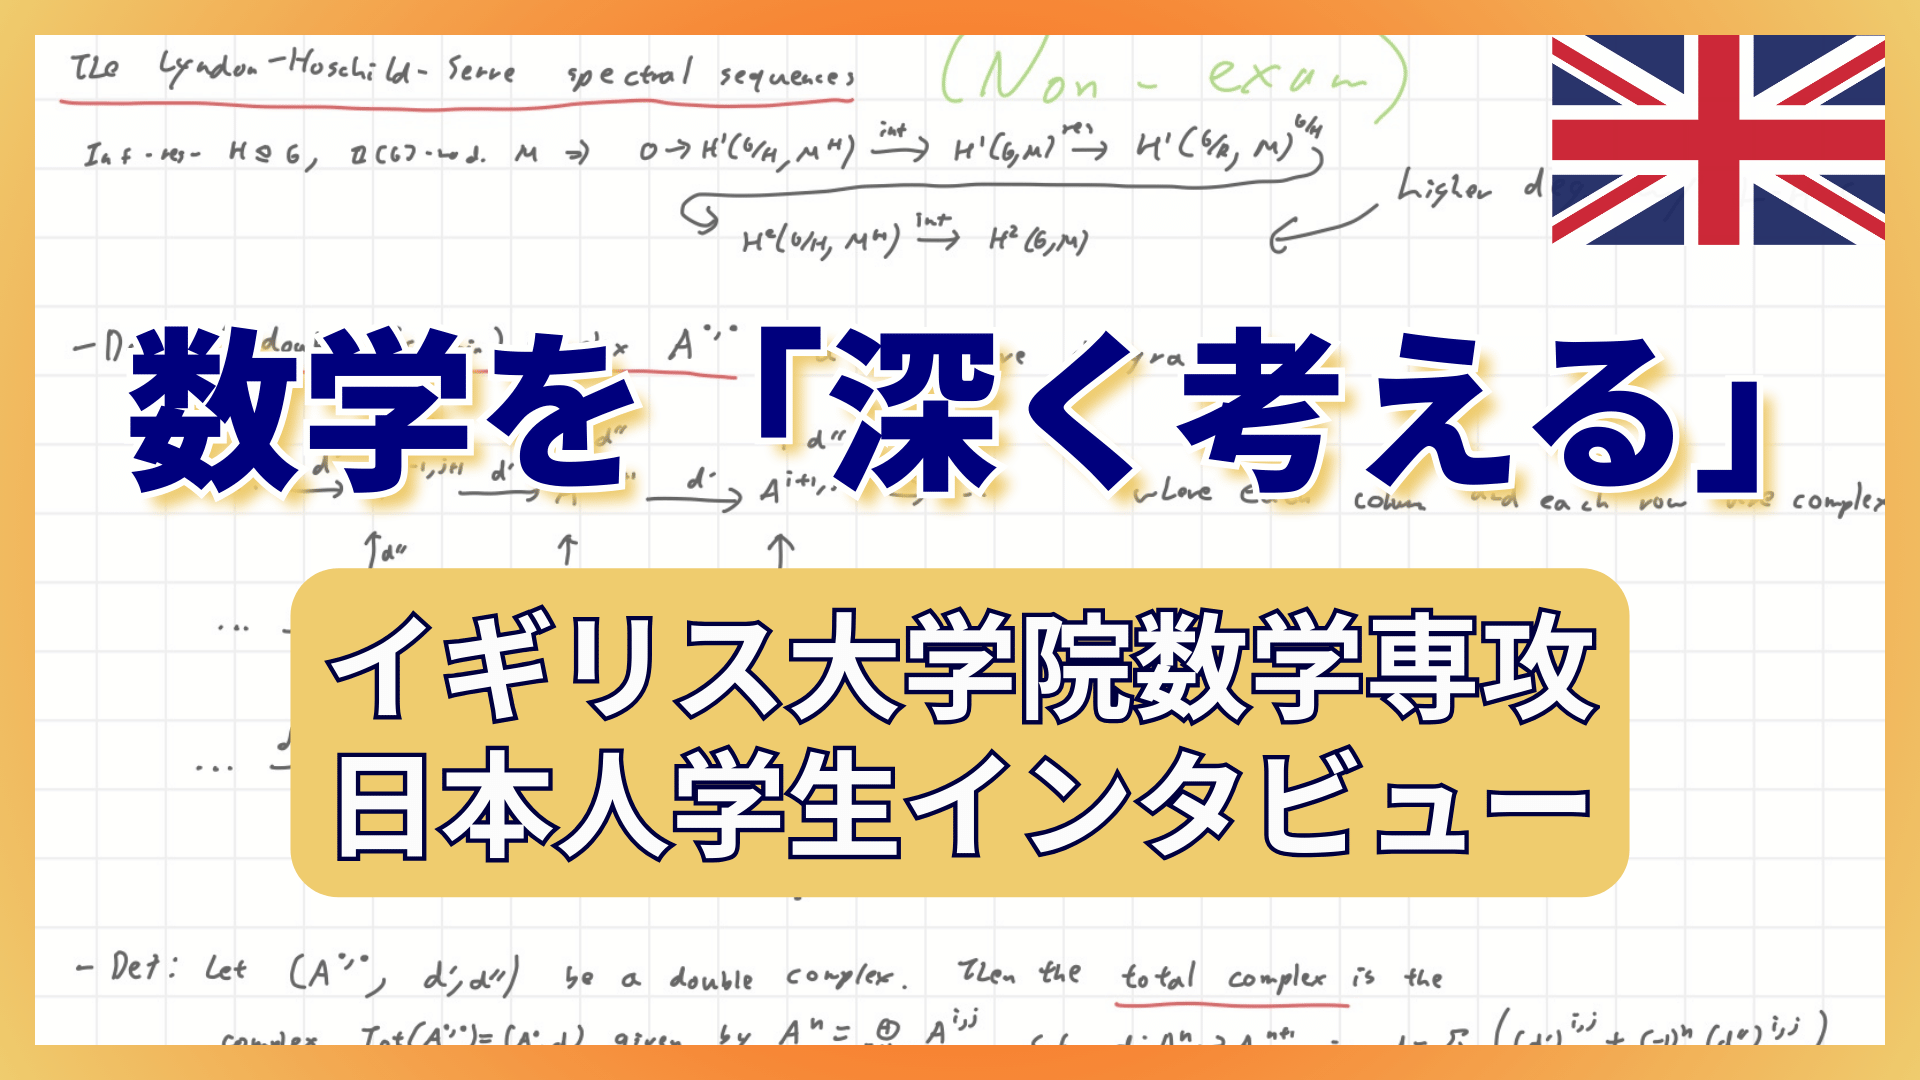 The Lyndon-Hoschild-Serre spectral sequences (Non-exam)
Inf-res- H ⊴ G, ℤ[G]-mod. M ⇒ 0 → H¹(G/H, Mᴴ) inf → H¹(G,M) res → H¹(G/H, M)^G/H
Higher
H²(G/H, Mᴴ) inf → H²(G,M)
数学を「深く考える」
d' d' d' A^i+1, each column and each row complex
d''
イギリス大学院数学専攻
日本人学生インタビュー
- Def: Let (A^•,•, d', d'') be a double complex. Then the total complex is the
complex Tot(A^•,•) = (A^•, d) given by Aⁿ = ⊕ A^i,j